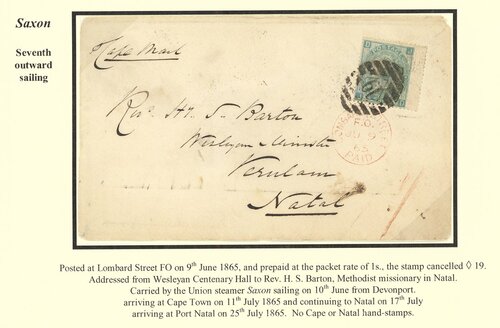 Saxon
Seventh
outward
sailing
Cape Mail
Revd. H. S. Barton
Wesleyan Minister
Verulam
Natal
POSTAGE
LOMBARD STREET
F.O.
JU 9
65
PAID
Posted at Lombard Street FO on 9th June 1865, and prepaid at the packet rate of 1s., the stamp cancelled ◊ 19.
Addressed from Wesleyan Centenary Hall to Rev. H. S. Barton, Methodist missionary in Natal.
Carried by the Union steamer Saxon sailing on 10th June from Devonport.
arriving at Cape Town on 11th July 1865 and continuing to Natal on 17th July
arriving at Port Natal on 25th July 1865. No Cape or Natal hand-stamps.